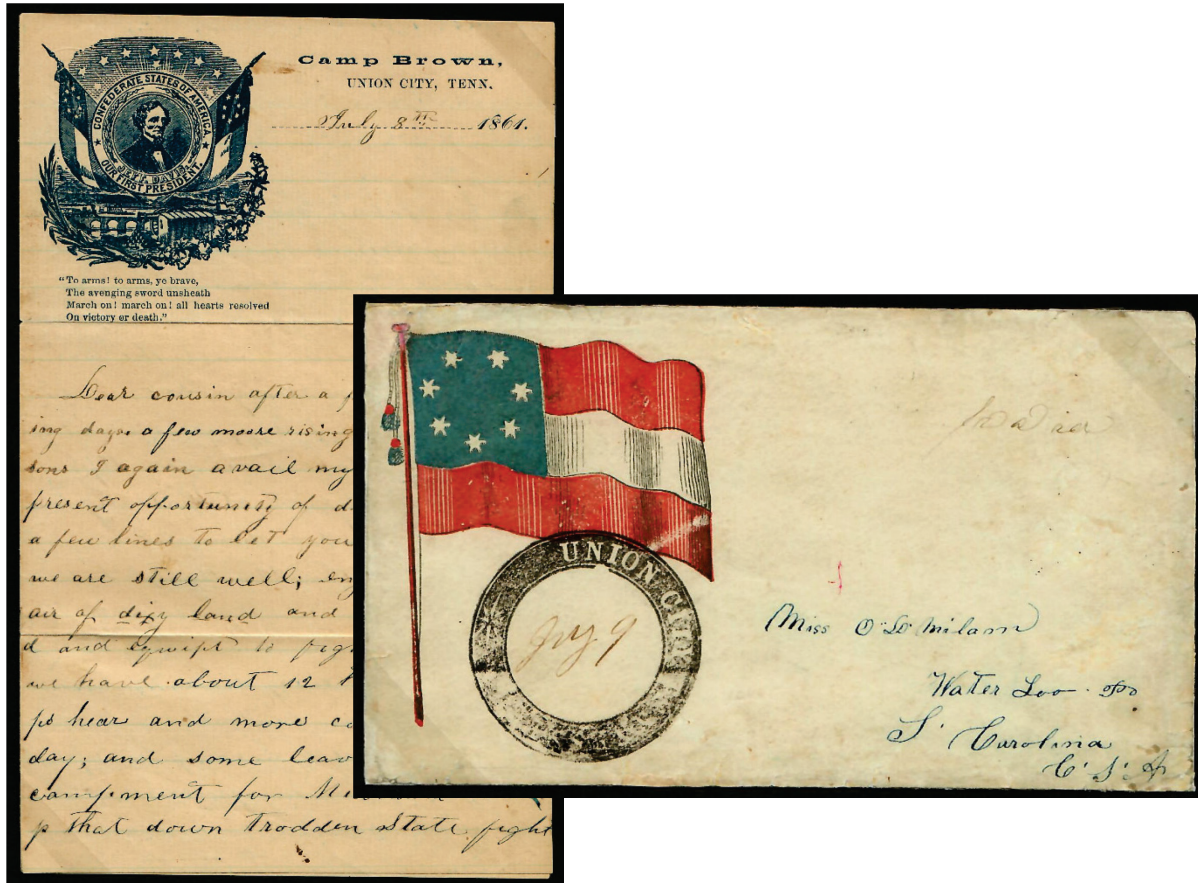 CONFEDERATE STATES OF AMERICA.
JEFF. DAVIS.
OUR FIRST PRESIDENT.
"To arms! to arms, ye brave,
The avenging sword unsheath
March on! march on! all hearts resolved
On victory or death."
Camp Brown,
UNION CITY, TENN.
July 8th 1861.
Dear cousin after a
ing days. a few moore rising
sons I again avail my
present opportunity of d
a few lines to let you
we are still well; en
air of dixy land and
d and equipt to figh
we have about 12
ps hear and more co
day; and some leav
campment for
p that down trodden State fight
UNION CITY
July 9
Miss O D Milam
Water Loo
S. Carolina
C. S. A